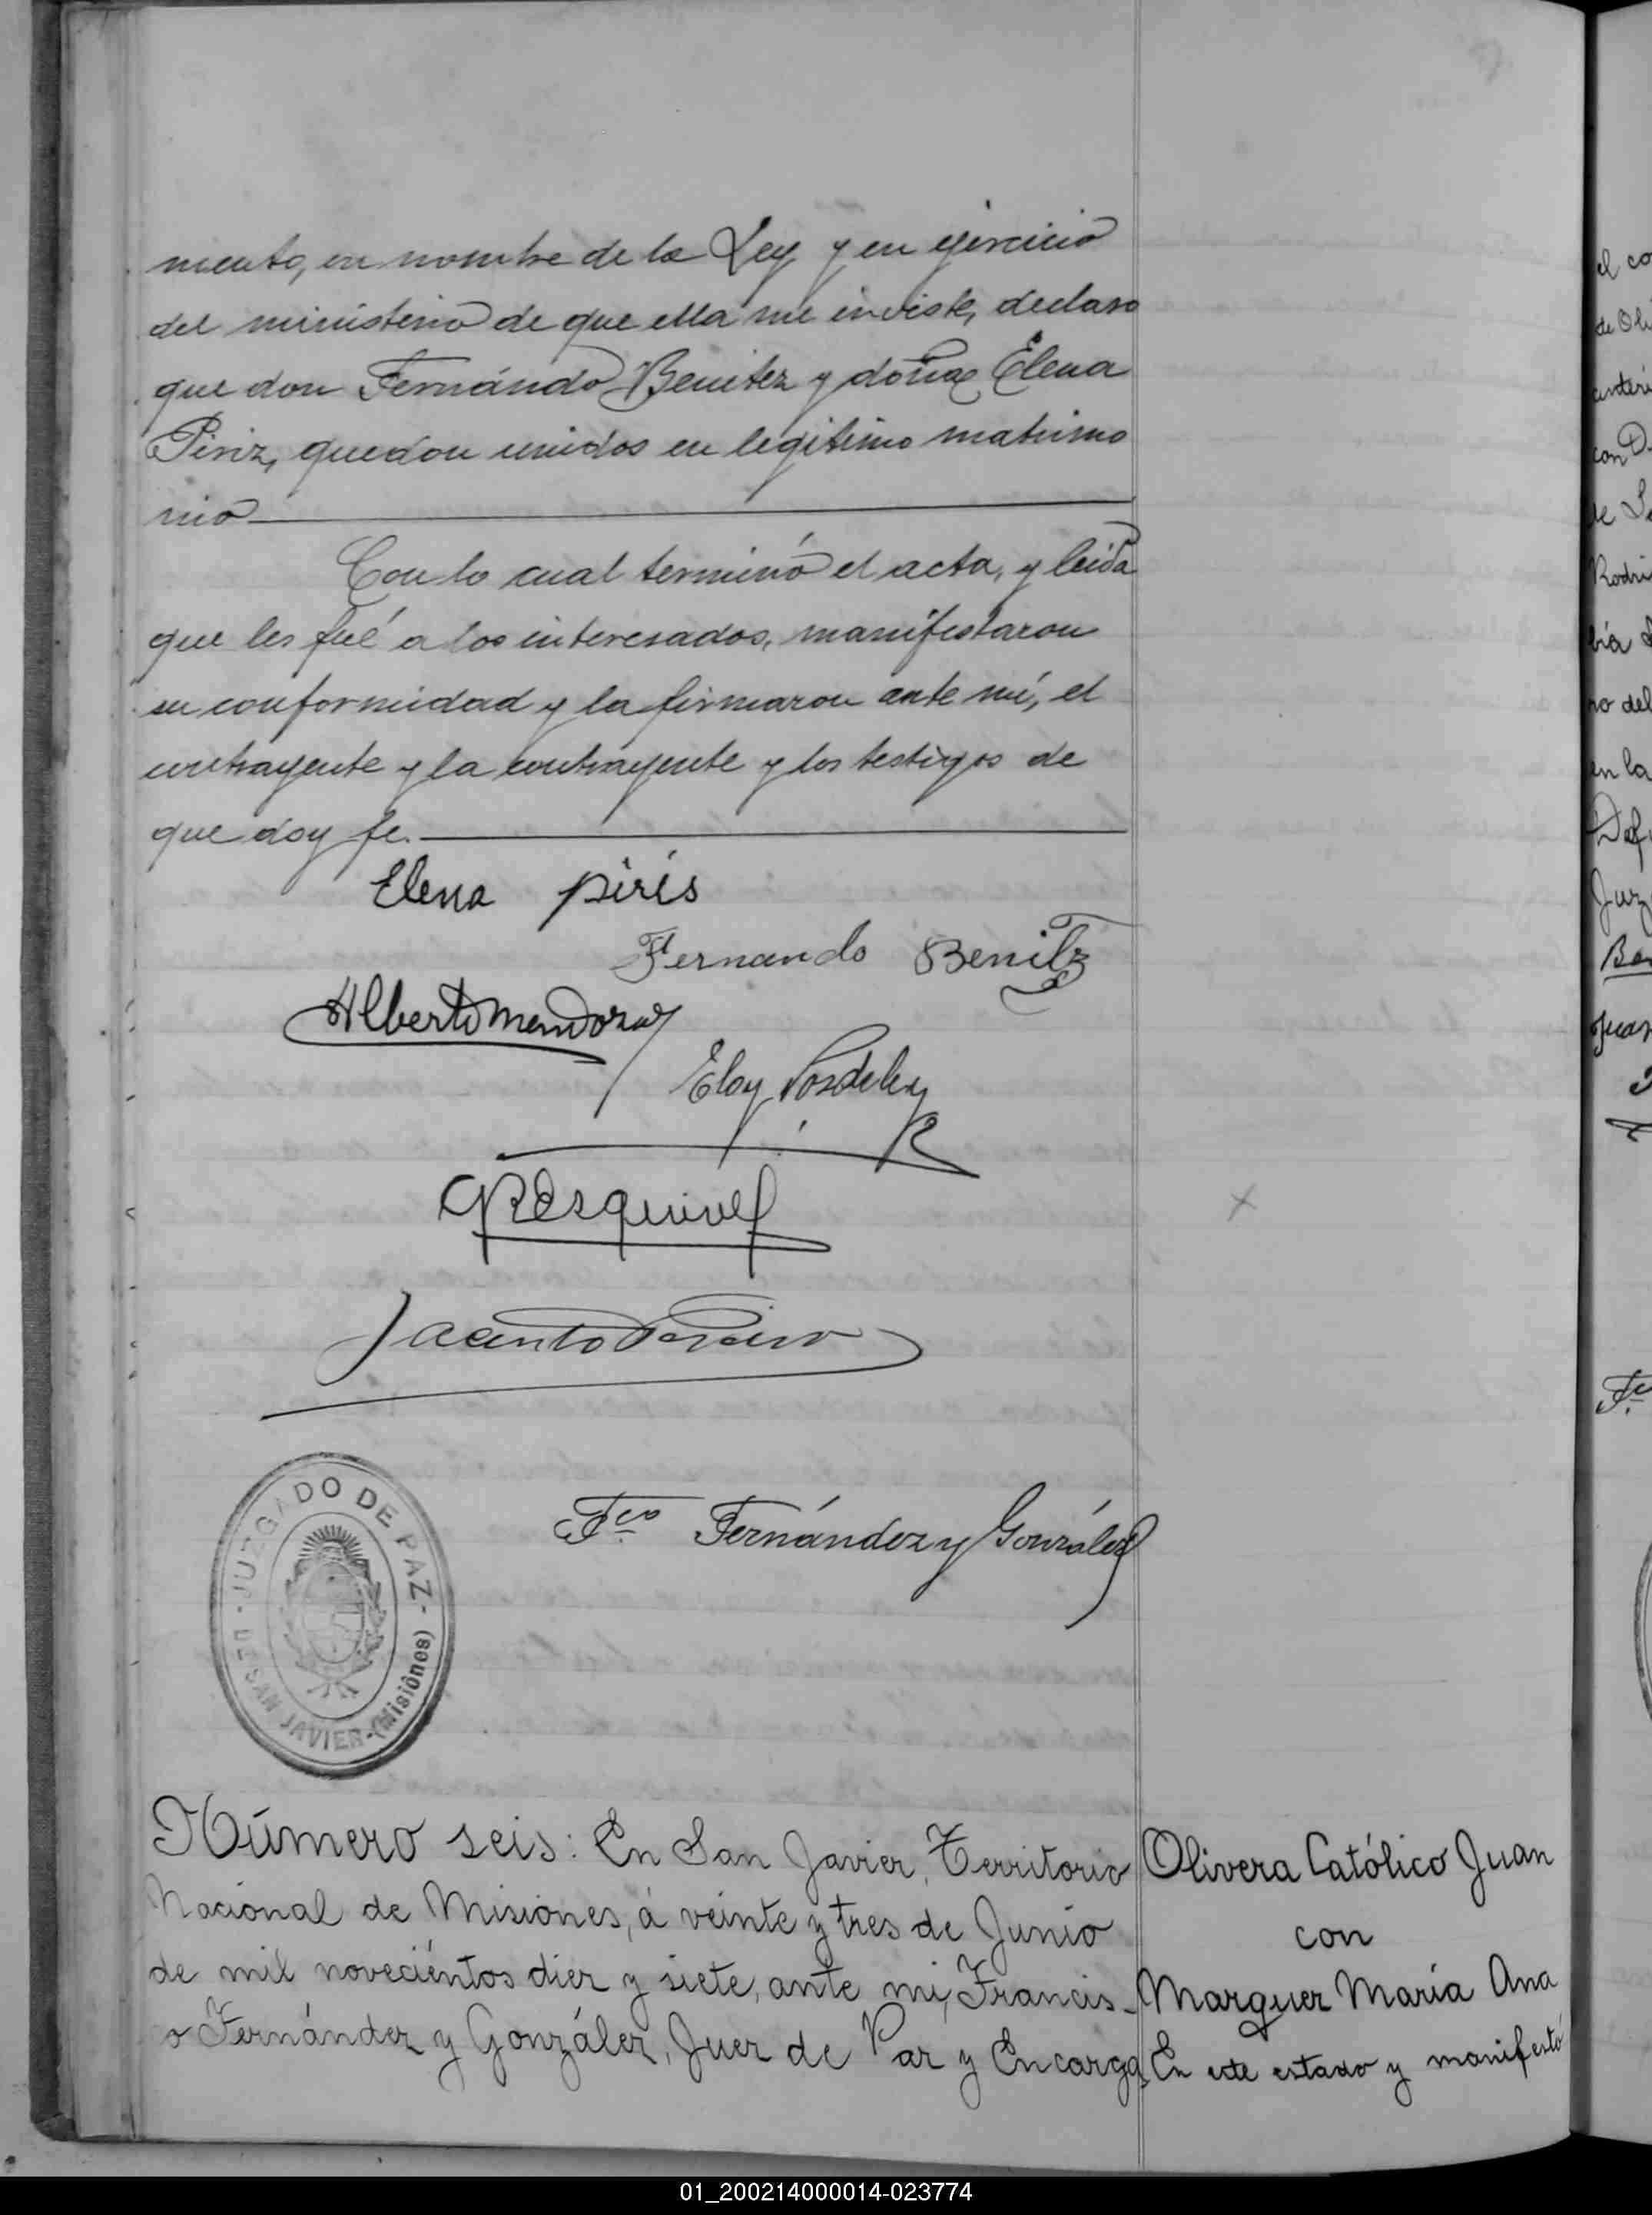 miento, en nombre de la Ley y en ejercicio
del ministerio de que ella me inviste, declaro
que don Fernándo Benitez y doña Elena
Piriz, quedan unidos en legitimo matrimo
nio
Con lo cual terminó el acta, y leida
que les fué a los interesados, manifestaron
su conformidad y la firmaron ante mí, el
contrayente y la contrayente y los testigos de
que doy fe.
Elena piris
Fernando Benitz
Alberto Mendoza
Eloy
Esquivel
Jacinto
Fco Fernández y González
JUZGADO DE PAZ
DE SAN JAVIER-(Misiones)
Número seis: En San Javier, Territorio
Nacional de Misiones, á veinte y tres de Junio
de mil novecientos diez y siete, ante mi, Francis-
o Fernández y González, Juez de Paz y Encarga
Olivera Católico Juan
con
Marquez María Ana
En este estado y manifestó
el co
de Oli
anteri
con D.
de
Rodri
bía
no del
en la
Def
Juz
Be
Juan
01_200214000014-023774